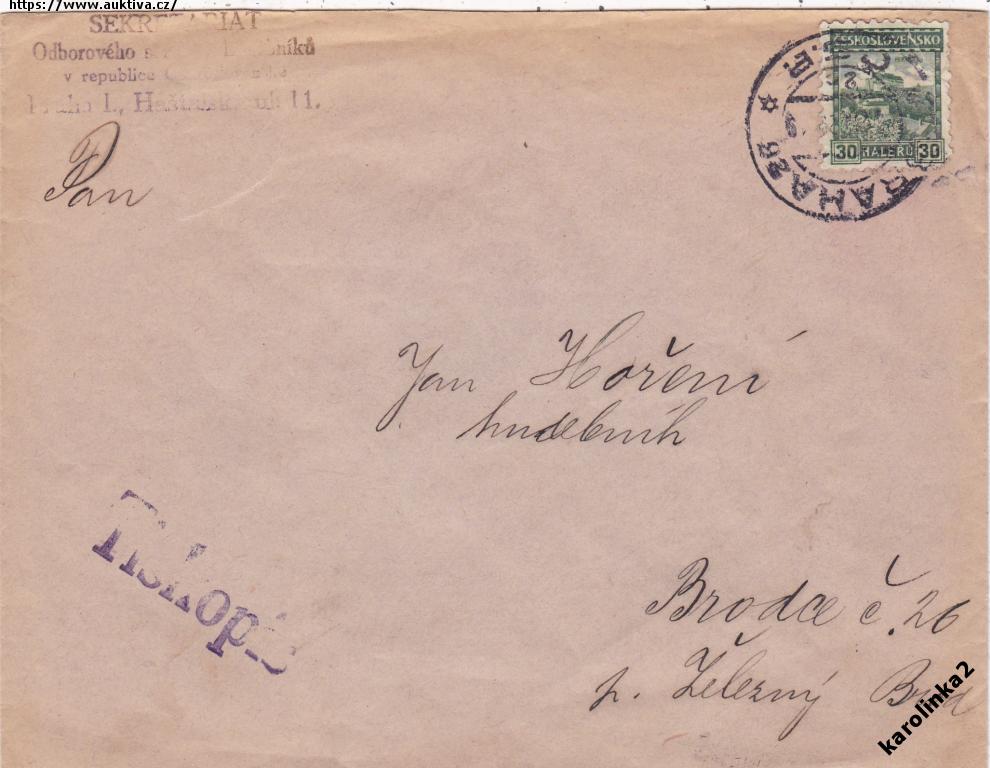 https://www.auktiva.cz/
SEKRETARIAT
Odborového
v republice
Praha I., 11.
ČESKOSLOVENSKO
30 HALÉŘŮ 30
PRAHA 25
Pan
Jan Hoření
hudebník
Tiskopis
Brodce č. 26
p. Železný Brod
karolinka2